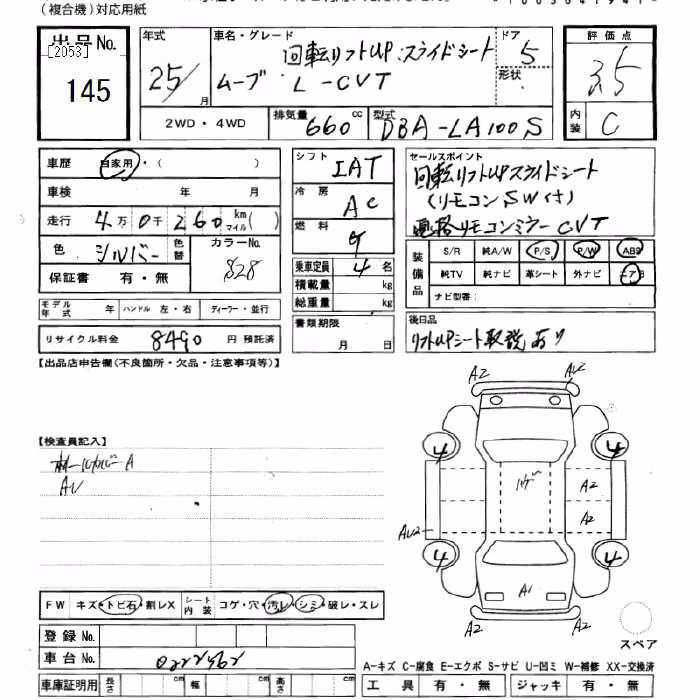 (複合機)対応用紙
出品No. 年式 車名・グレード ドア 評価点
[2053]
145
25/ 月
回転リフトUP.スライドシート
ムーブ L-CVT
5
形状
3.5
2WD・4WD 排気量 660 cc 型式 DBA-LA100S
内装 C
車歴 自家用・( )
車検 年 月
走行 4万0千260 km マイル ( )
色 シルバー 色替 カラーNo. S28
保証書 有・無
モデル年式 年 ハンドル 左・右 ディーラー・並行
リサイクル料金 8490 円 預託済
シフト IAT
冷房 AC
燃料 G
乗車定員 4 名
積載量 kg
総重量 kg
書類期限
月 日
セールスポイント
回転リフトUPスライドシート
(リモコンSW付)
電格リモコンミラー CVT
装備品 S/R 純A/W P/S P/W ABS
純TV 純ナビ 革シート 外ナビ エアB
ナビ型番:
後日品
リフトUPシート取説あり
【出品店申告欄(不良箇所・欠品・注意事項等)】
【検査員記入】
A
AU
A2 AU2
4 4
A2
A2
AU2
4 4
A1
A2 A2
スペア
FW キズ・トビ石・割レX シート内装 コゲ・穴・汚レ・シミ・破レ・スレ
登録No.
車台No. 0222462
車庫証明用 長さ cm 幅 cm 高さ cm
A-キズ C-腐食 E-エクボ S-サビ U-凹ミ W-補修 XX-交換済
工具 有・無 ジャッキ 有・無